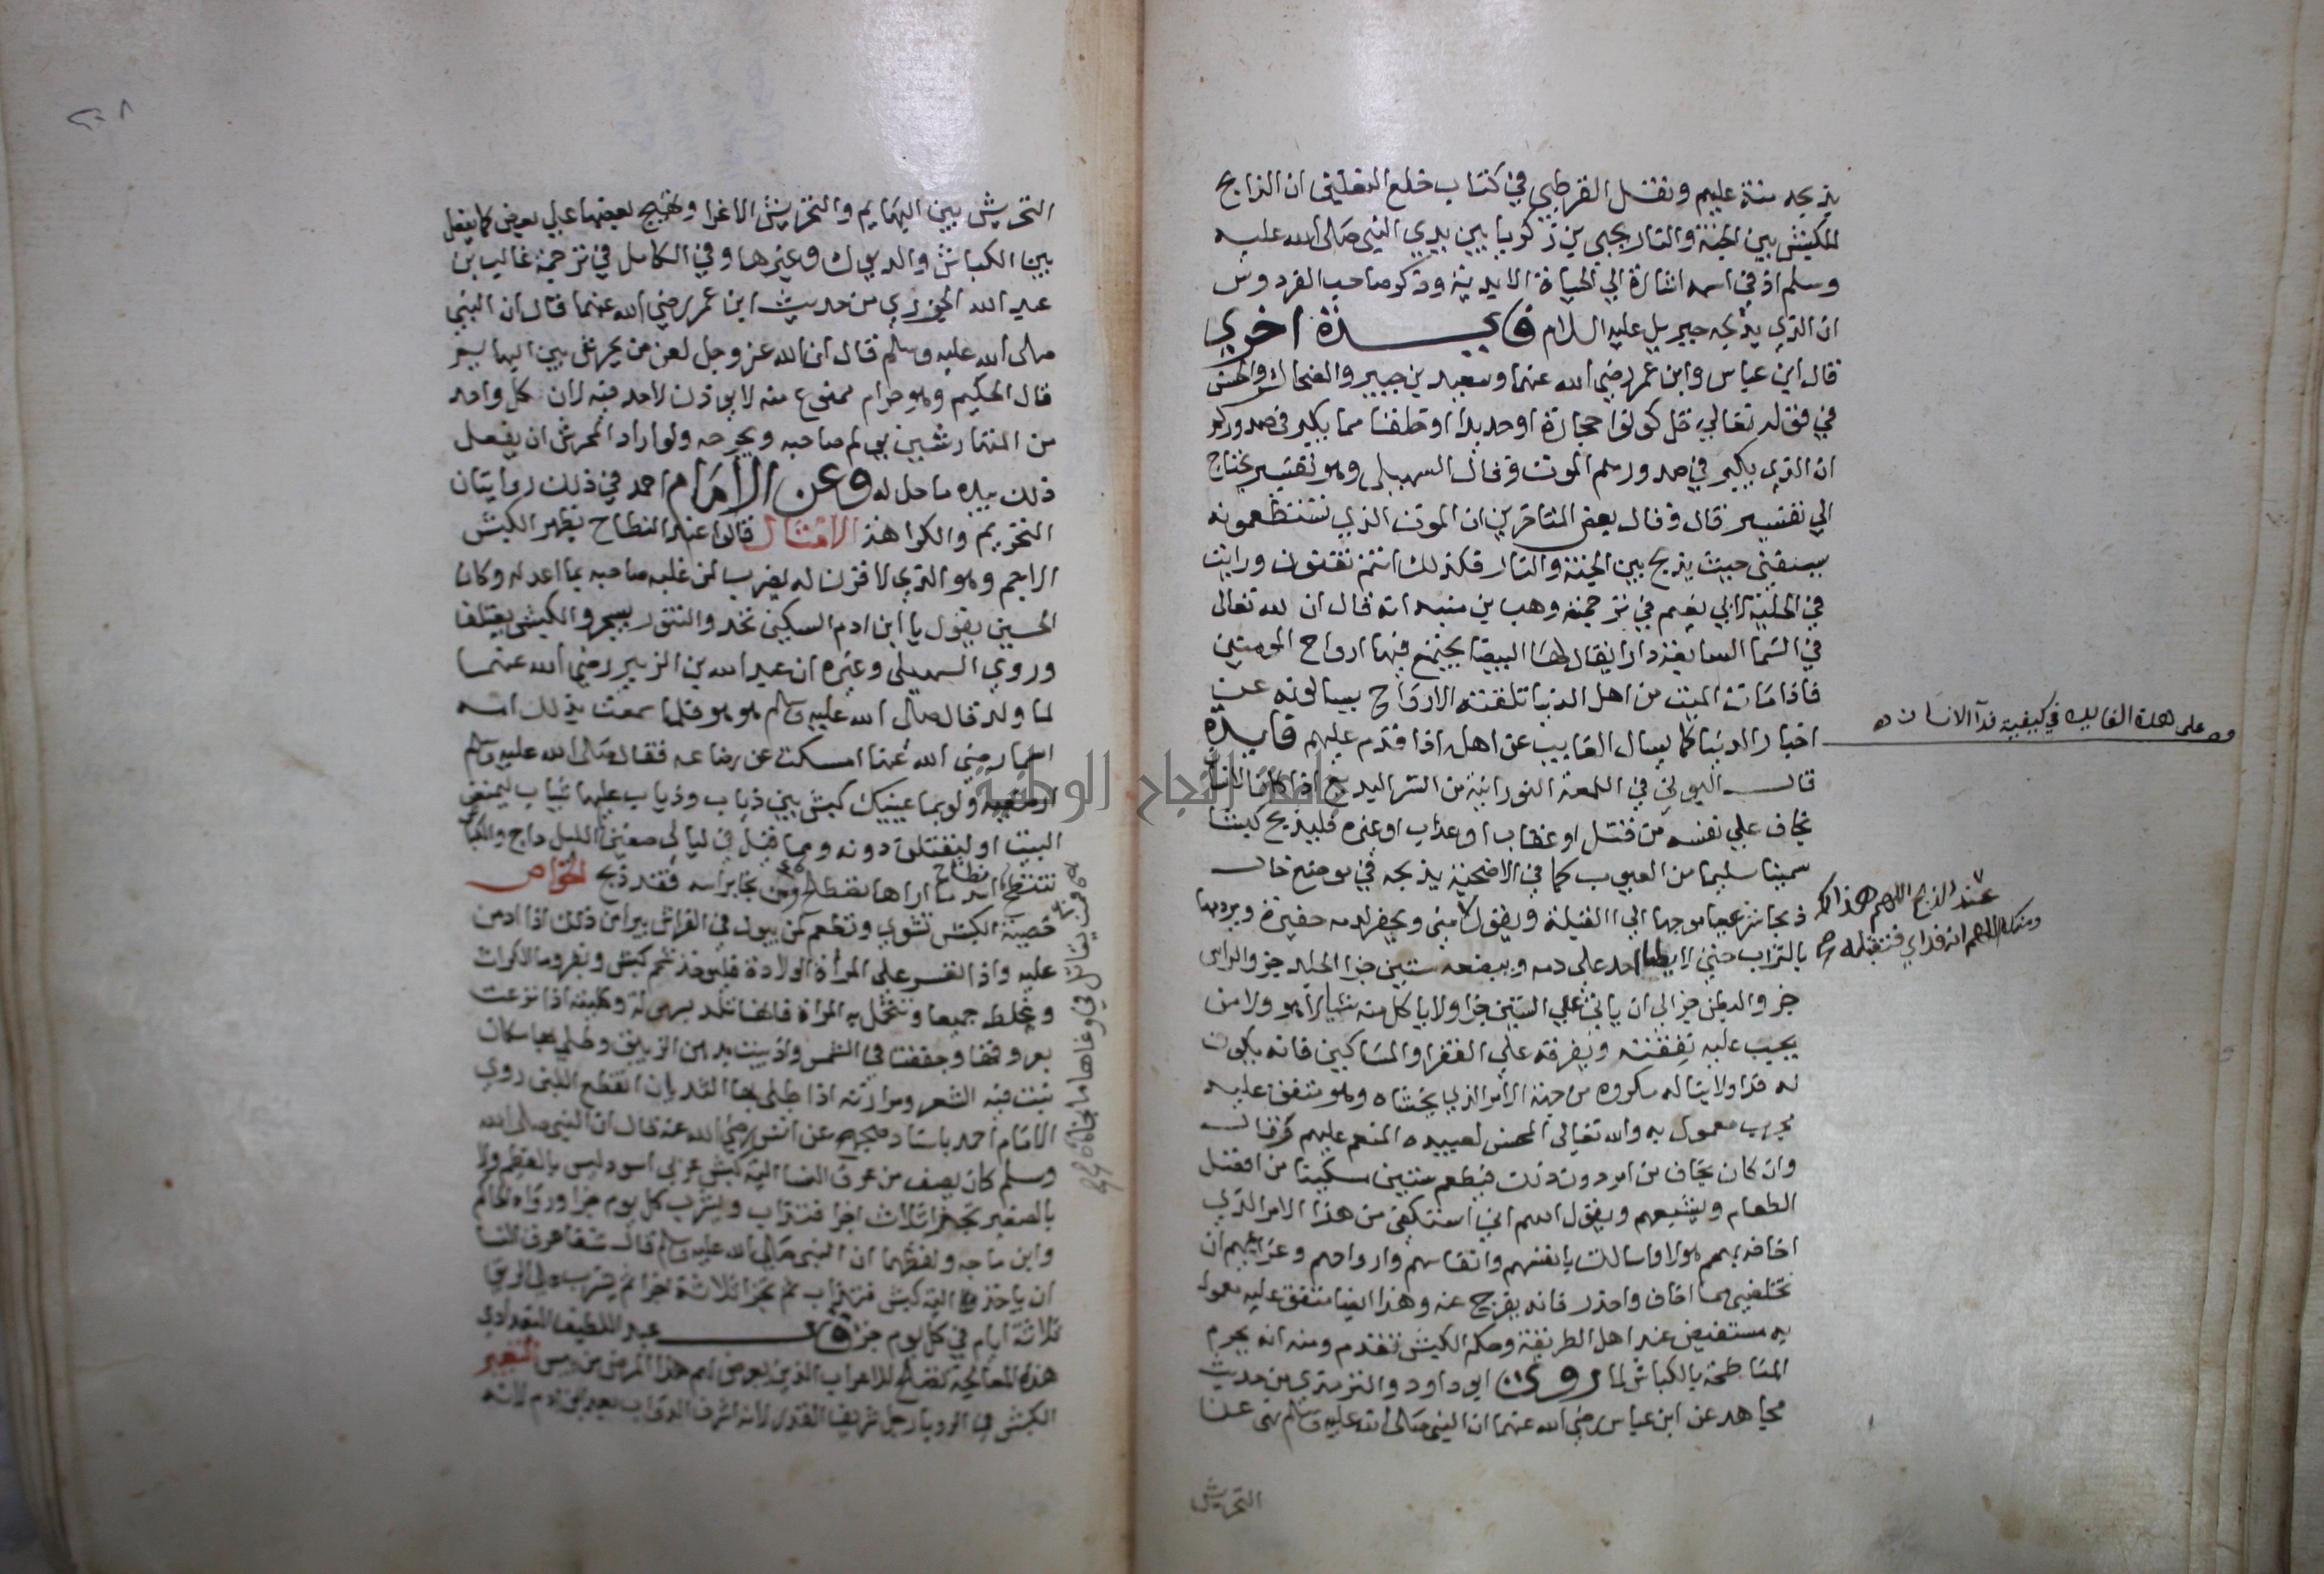 يذبحه منة عليهم ونقل القرطبي في كتاب خلع النعلين ان الذابح
للكبش بين الجنة والنار يحيى بن زكريا بين يدي النبي صلى الله عليه
وسلم اذ في اسمه اشارة الي الحياة الابدية وذكر صاحب الفردوس
ان الذي يذبحه جبريل عليه السلام فايدة اخري
قال ابن عباس وابن عمر رضي الله عنهما وسعيد بن جبير والضحاك والحسن
في قوله تعالي قل كونوا حجارة او حديدا او خلقا مما يكبر في صدوركم
ان الذي يكبر في صدورهم الموت وقال السهيلي وهو تفسير يحتاج
الي تفسير قال وقال بعض المتاخرين ان الموت الذي تستعظمونه
سيفني حيث يذبح بين الجنة والنار فكذلك انتم تفنون ورايت
في الحلية لابي نعيم في ترجمة وهب بن منبه انه قال ان لله تعالى
في السما السابعة دارا يقال لها البيضا يجتمع فيها ارواح المومنين
فاذا مات الميت من اهل الدنيا تلقته الارواح يسالونه عن
اخبار الدنيا كما يسال الغايب عن اهله اذا قدم عليهم فايدة
قال البوني في اللمعة النورانية من السر البديع اذا كان الانسان
يخاف علي نفسه من قتل او عقاب او عذاب او غيره فليذبح كبشا
سمينا سليما من العيوب كما في الاضحية يذبحه في موضع خال
ذبحا شرعيا موجها الي القبلة ويقول مني ويحفر لدمه حفيرة ويردمها
بالتراب حتي لا يطا احد علي دمه ويبضعه ستين جزا الجلد جز والراس
جز والبطن جز الي ان ياتي علي الستين جزا ولا ياكل منه شيا لا هو ولا من
يجب عليه نفقته ويفرقه علي الفقرا والمساكين فانه يكون
له فدا ولا يناله مكروه من جهة الامر الذي يخشاه وهو متفق عليه
مجرب معمول به والله تعالى المحسن لعبيده المنعم عليهم
وان كان يخاف من امر دون ذلك فيطعم ستين مسكينا من افضل
الطعام ويشبعهم ويقول اللهم اني استكفي من هذا الامر الذي
اخافه بهمم هولا واسالك بانفسهم وانفاسهم وارواحهم وعزايمهم ان
تخلصني مما اخاف واحذر فانه يفرج عنه وهذا ايضا متفق عليه معمول
به مستفيض عند اهل الطريقة وحكم الكبش تقدم ومنه انه يحرم
المناطحة بالكباش لما روي ابو داود والترمذي من حديث
مجاهد عن ابن عباس رضي الله عنهما ان النبي صلى الله عليه وسلم نهى عن
التحريش
علي هذة الفايدة في كيفية فدا الانسان
عند الذبح اللهم هذا لك
ومنك اللهم انه فداي فتقبله
التحريش بين البهايم والتحريش الاغرا وتهييج بعضها علي بعض كما يفعل
بين الكباش والديوك وغيرها وفي الكامل في ترجمة غالب بن
عبد الله الجزري من حديث ابن عمر رضي الله عنهما قال ان النبي
صلى الله عليه وسلم قال ان الله عز وجل لعن من يحرش بين البهايم
قال الحكيم وهو حرام ممنوع منه لا يوذن لاحد فيه لان كل واحد
من المتهارشين يولم صاحبه ويجرحه ولو اراد المحرش ان يفعل
ذلك بيده ما حل له وعن الامام احمد في ذلك روايتان
التحريم والكراهة الامثال قالوا عند النطاح يظهر الكبش
الاجم وهو الذي لا قرن له يضرب لمن غلبه صاحبه بما اعد له وكان
الحسين يقول يا ابن ادم السكين تحد والتنور يسجر والكبش يعتلف
وروي السهيلي وغيره ان عبد الله بن الزبير رضي الله عنهما
لما ولد قال صلى الله عليه وسلم هو هو فلما سمعت بذلك امه
اسما رضي الله عنها امسكت عن رضاعه فقال صلى الله عليه وسلم
ارضعيه ولو بما عينيك كبش بين ذياب وذياب عليها ثياب ليمنعن
البيت او ليقتلن دونه ومما قيل في ليالي صفين الليل داج والكباش
تنتطح نطاح اسد ما اراها تصطلح ومن نجا براسه فقد ربح الخواص
خصية الكبش تشوي وتطعم لمن يبول في الفراش يبرا من ذلك اذا ادمن
عليه واذا تعسر علي المراة الولادة فليوخذ شحم كبش وبقر وما الكراث
ويخلط جميعا وتتحمل به المراة فانها تلد بسهولة وكليته اذا نزعت
بعروقها وجففت في الشمس واذيبت بدهن الزيبق وطلي بها مكان
نبت فيه الشعر ومرارته اذا طلي بها الثديان انقطع اللبن روي
الامام احمد باسناد صحيح عن انس رضي الله عنه قال ان النبي صلى الله
وسلم كان يصف من عرق النسا الية كبش عربي اسود ليس بالعظيم ولا
بالصغير تجزا ثلاث اجزا فتذاب ويشرب كل يوم جزا ورواه الحاكم
وابن ماجه ولفظهما ان النبي صلى الله عليه وسلم قال شفا عرق النسا
ان ياخذ الية كبش فتذاب ثم تجزا ثلاثة اجزا ثم يشرب علي الريق
ثلاثة ايام في كل يوم جز قال عبد اللطيف البغدادي
هذه المعالجة تصلح للاعراب الذين يعرض لهم هذا المرض من يبس التعبير
الكبش في الرويا رجل شريف القدر لانه اشرف الدواب بعد ابن ادم لانه
جامعة النجاح الوطنية